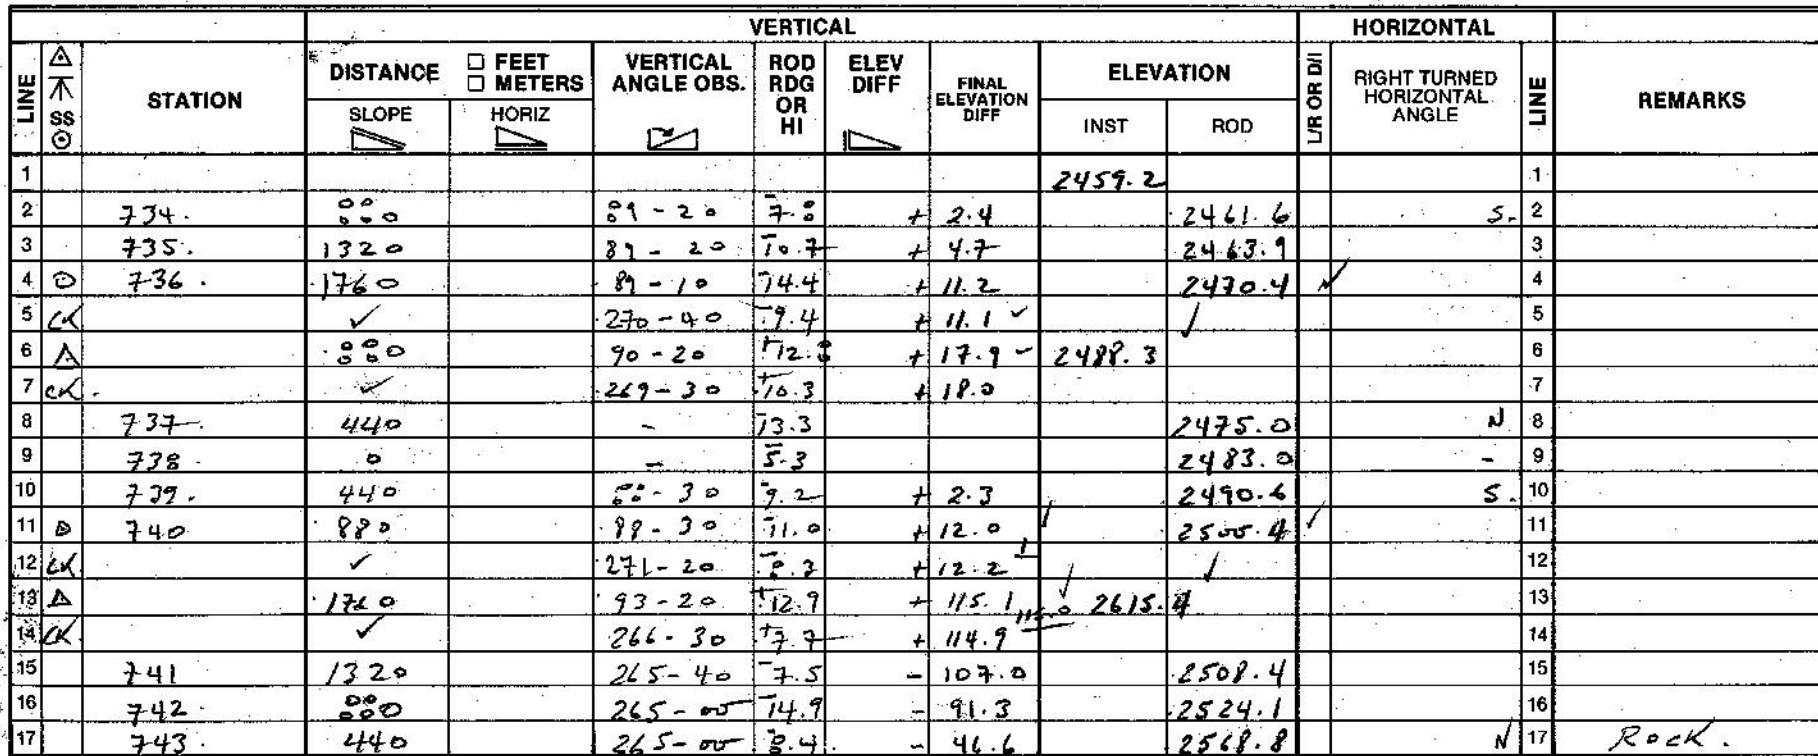 VERTICAL HORIZONTAL
LINE SS STATION DISTANCE FEET METERS VERTICAL ANGLE OBS. ROD RDG OR HI ELEV DIFF FINAL ELEVATION DIFF ELEVATION L/R OR D/I RIGHT TURNED HORIZONTAL ANGLE LINE REMARKS
SLOPE HORIZ INST ROD
1 2459.2 1
2 734. 880 89-20 -7.8 + 2.4 2461.6 S. 2
3 735. 1320 89-20 -10.7 + 4.7 2463.9 3
4 ⊙ 736. 1760 89-10 -14.4 + 11.2 2470.4 ✓ 4
5 CK ✓ 270-40 -9.4 + 11.1 ✓ ✓ 5
6 △ 880 90-20 +12.8 + 17.9 2488.3 6
7 CK. ✓ 269-30 +10.3 + 18.0 7
8 737. 440 - -13.3 2475.0 N 8
9 738. 0 - -5.3 2483.0 - 9
10 739. 440 88-30 -9.2 + 2.3 2490.6 S. 10
11 ⊙ 740 880 88-30 -11.0 + 12.0 ✓ 2500.4 ✓ 11
12 CK ✓ 271-20 -8.3 + 12.2 1 ✓ 12
13 △ 1760 93-20 +12.9 + 115.1 115.0 ✓ 2615.4 13
14 CK ✓ 266-30 +7.7 + 114.9 14
15 741 1320 265-40 -7.5 - 107.0 2508.4 15
16 742. 880 265-00 -14.9 - 91.3 2524.1 16
17 743. 440 265-00 -8.4. - 46.6 2568.8 N 17 Rock.